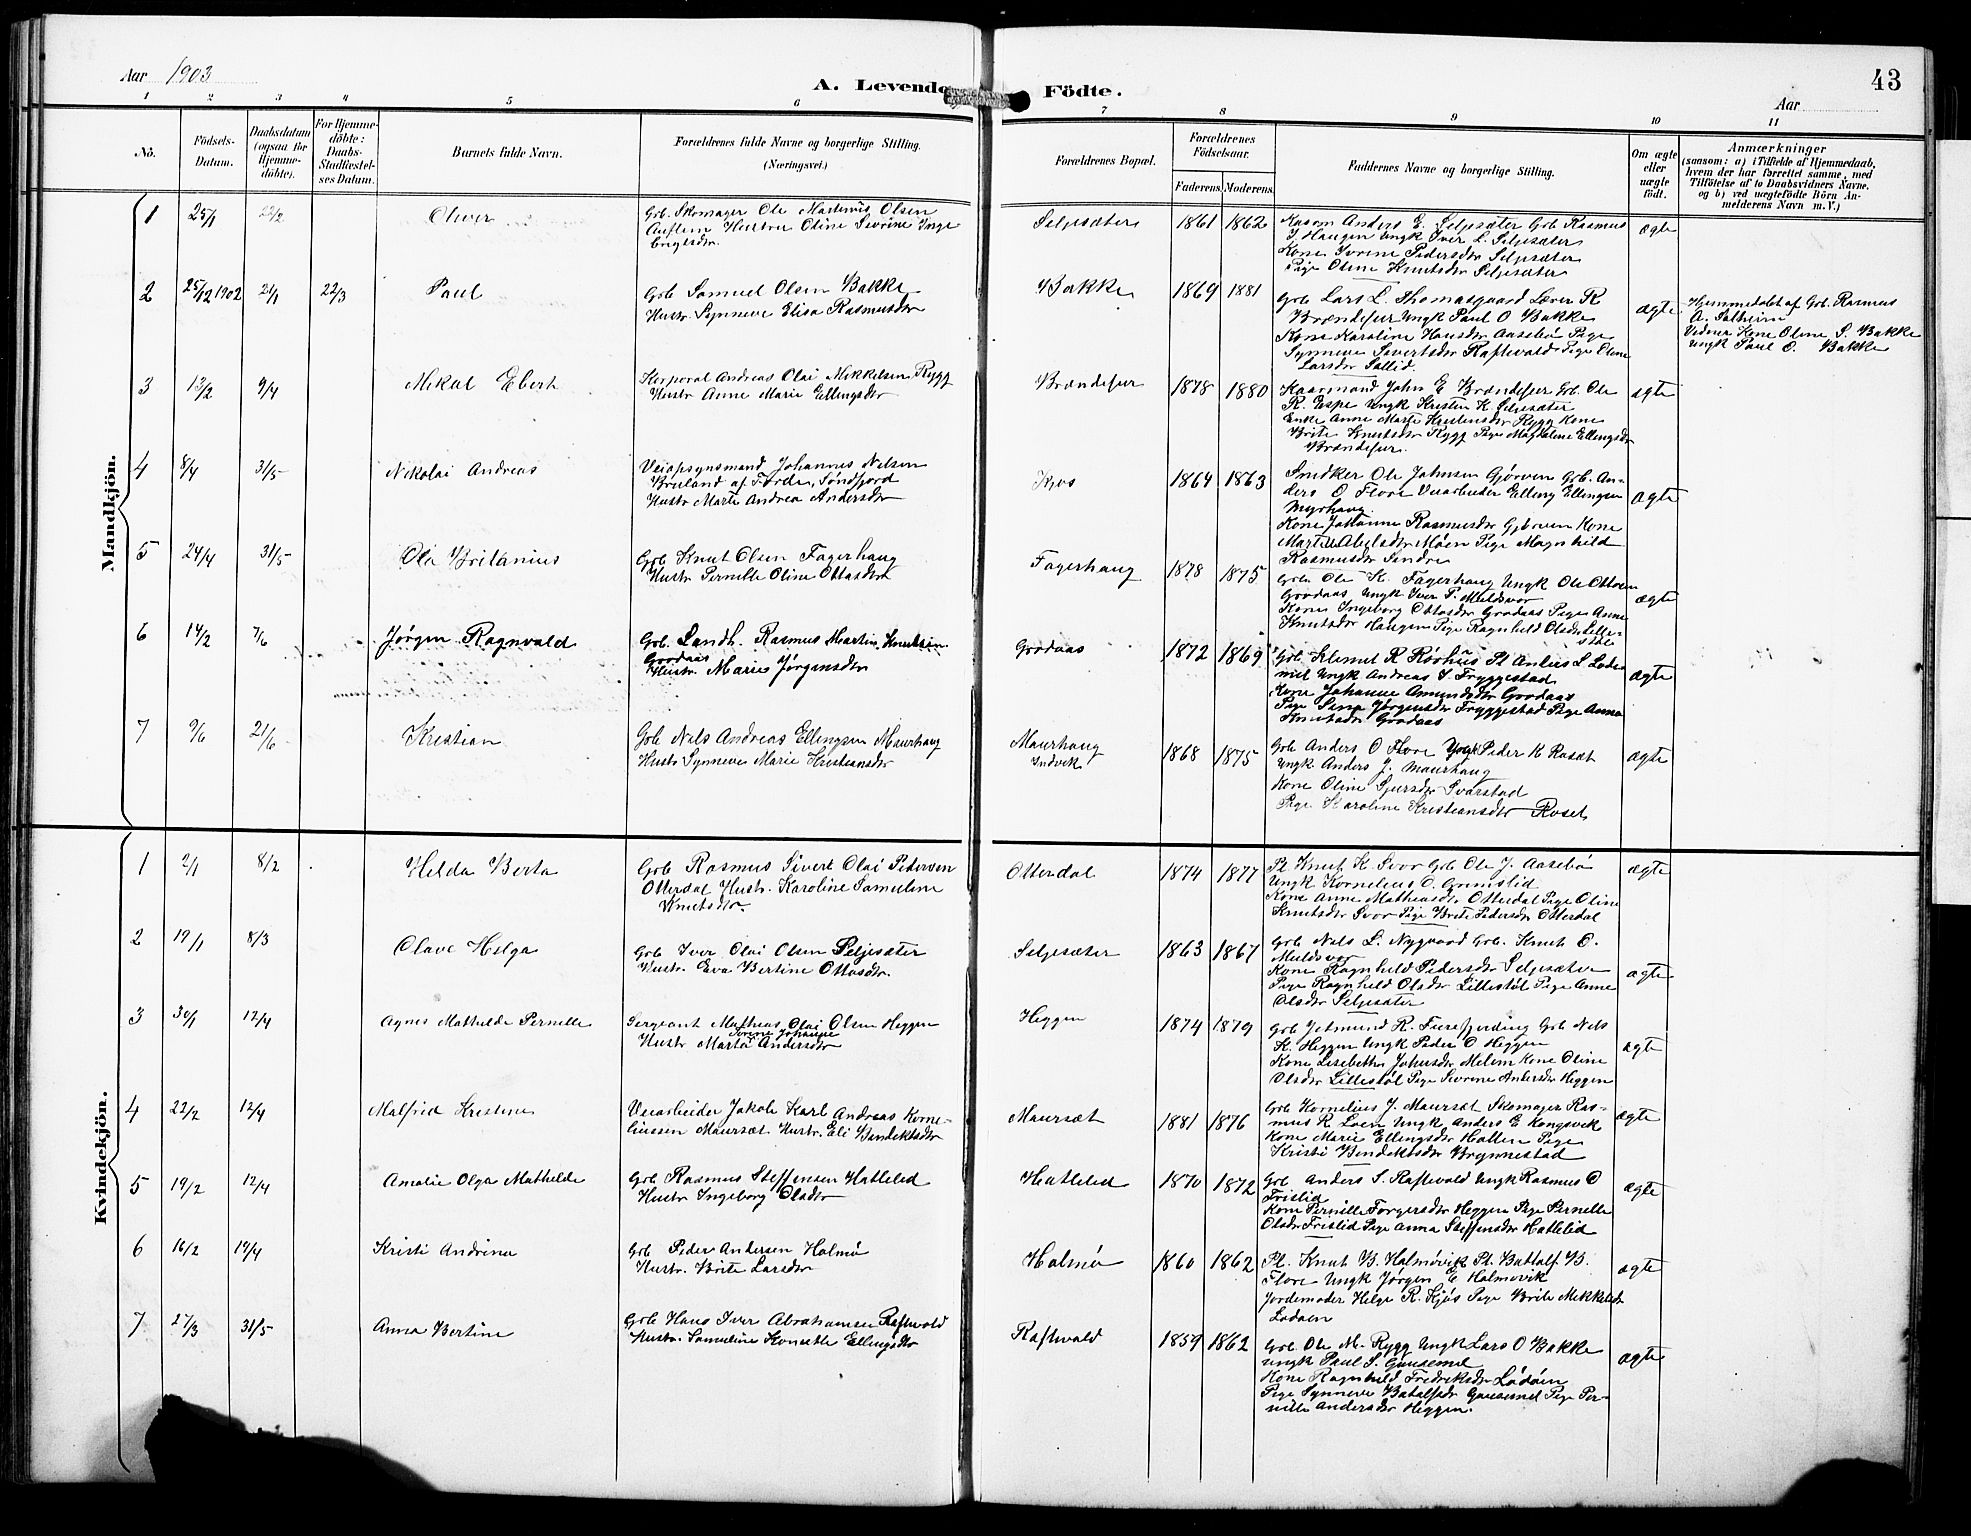 Aar 1903
A. Levende Födte.
43
Aar
1 2 3 4 5 6 7 8 9 10 11
No.
Födsels-
Datum.
Daabsdatum
(ogsaa for
Hjemme-
döbte).
For Hjemme-
döbte:
Daabs-
Stadfæstel-
ses Datum.
Barnets fulde Navn.
Forældrenes fulde Navne og borgerlige Stilling.
(Næringsvei.)
Forældrenes Bopæl.
Forældrenes
Födselsaar.
Faderens. Moderens.
Faddernes Navne og borgerlige Stilling.
Om ægte
eller
uægte
födt.
Anmærkninger
(saasom: a) i Tilfælde af Hjemmedaab,
hvem der har forrettet samme, med
Tilföielse af to Daabsvidners Navne.
og b) ved uægtefödte Börn An-
melderens Navn m. V.)
Mandkjön.
1 25/1 22/2 Oliver
Grb. Skomager Ole Martinus Olsen
Hustru Oline Severine Inge
brigtsdtr
Seljesæter 1861 1862
Anders E. Seljesæter Grb Rasmus
J. Haugen Ungk Iver L. Seljesæter
Kone Severine Pedersdtr Seljesæter
Pige Oline Knutsdtr Seljesæter
ægte
2 25/12 1902 21/1 22/3 Paul
Grb Samuel Olsen Bakke
Hustr. Synneve Elisa Rasmusdtr
Bakke 1869 1881
Grb Lars L. Thomasgaard Lærer R
Brændefur Ungk Paul O Bakke
Kone Karoline Hansdtr Aasebø Pige
Synneve Sivertsdtr Raftevold Pige Oline
Larsdtr
ægte
Hjemmedøbt af Grb. Rasmus
A. Solheim
Vidner Kone Oline S. Bakke
Ungk Paul O. Bakke
3 13/2 9/4 Mikal Ebert
Korporal Andreas Olai Mikkelsen Rygg
Hustr Anne Marie Ellingsdtr
Brændefur 1878 1880
Kaarmand John E Brændefur Grb. Ole
R. Espe Ungk Kristen K Seljesæter
Enke Anne Marte Kristensdtr Rygg Kone
Brite Knutsdtr Rygg Pige Magdalene Ellingsdtr
Brændefur.
ægte
4 8/4 31/5 Nikolai Andreas
Veiopsynsmand Johannes Nilsen
Bruland af Førde, Søndfjord
Hustr Marte Andrea Andersdtr
Kjøs 1864 1863
Snedker Ole Johnsen Gjørven Grb. An-
ders O Flore Veiarbeider Elling Ellingsen
Myrhaug
Kone Johanne Rasmusdtr Gjørven Kone
Marte Abelsdtr Moen Pige Magnhild
Rasmusdtr Sindre
ægte
5 24/4 31/5 Ola Britanius
Grb Knut Olsen Fagerhaug
Hustr Pernille Oline Ottosdtr
Fagerhaug 1878 1875
Grb. Ole K. Fagerhaug Ungk Ole Ottosen
Grodaas Ungk Iver P. Muldsvor
Kone Ingeborg Ottosdtr Grodaas Pige Anne
Knutsdtr Haugen Pige Ragnhild Olsdtr Lille-
støl
ægte
6 14/2 7/6 Jørgen Ragnvald
Grb. Landh. Rasmus Martin Knutsen
Grodaas
Hustr. Marie Jørgensdtr
Grodaas 1872 1869
Grb Klemet R Rørhus Pl Anders L Lode
mel Ungk Andreas S Tryggestad
Kone Johanne Amundsdtr Grodaas
Pige Sina Jørgensdtr Tryggestad Pige Anna
Knutsdtr Grodaas
ægte
7 9/6 21/6 Kristian
Grb Nils Andreas Ellingsen Maurhaug
Hustr Synneve Marie Kristiansdtr
Maurhaug
Indvik
1868 1875
Grb Anders O Flore Ungk Peder K Roset
Ungk Anders J. Maurhaug
Kone Oline Sjursdtr Svarstad
Pige Karoline Kristiansdtr Roset
ægte
Kvindekjön.
1 2/1 8/2 Hilda Berta
Grb Rasmus Sivert Olai Pedersen
Otterdal Hustr. Karoline Samueline
Knutsdtr.
Otterdal 1874 1877
Pl Knut K. Svor Grb Ole J. Aasebø
Ungk Kornelius O. Grimslid
Kone Anne Mathiasdtr Otterdal Pige Oline
Knutsdtr Svor Pige Brite Pedersdtr Otterdal
ægte
2 19/1 8/3 Olave Helga
Grb Iver Olai Olsen Seljesæter
Hustr. Eva Bertine Ottosdtr.
Seljesæter 1863 1867
Grb Nils L. Nygaard Grb. Knut O.
Muldsvor
Kone Ragnhild Pedersdtr Seljesæter
Pige Ragnhild Olsdtr Lillestøl Pige Anne
Olsdtr Seljesæter
ægte
3 30/1 12/4 Agnes Mathilde Pernille
Sergeant Mathias Olai Olsen Heggen
Sorine Johanne
Hustr Marta Andersdtr
Heggen 1874 1879
Grb Jetmund R. Furefjording Grb Nils
K. Heggen Ungk Peder O Heggen
Kone Lisebeth Johnsdtr Melem Kone Oline
Olsdtr Lillestøl Pige Severine Andersdtr Heggen
ægte
4 22/2 12/4 Malfrid Kristine
Veiarbeider Jakob Karl Andreas Korne-
liussen Maursæt Hustr. Eli Bendiktsdtr
Maursæt 1881 1876
Grb Kornelius J. Maursæt Skomager Ras-
mus R Loen Ungk Anders E Kongsvik
Kone Marie Ellingsdtr Hallen Pige
Kristi Bendiktsdtr Brynnestad
ægte
5 19/2 12/4 Amalie Olga Mathilde
Grb Rasmus Steffensen Hatleid
Hustr Ingeborg Olsdtr
Hatleid 1870 1872
Grb Anders S. Raftevold Ungk Rasmus O
Frislid
Kone Pernille Torgersdtr Heggen Pige Pernille
Olsdtr Frislid Pige Anna Steffensdtr Hatleid
ægte
6 16/2 19/4 Kristi Andrina
Grb Peder Andersen Holmø
Hustr. Brite Larsdtr
Holmø 1860 1862
Pl. Knut B. Holmøvik Pl. Battolf B.
Flore Ungk Jørgen E Holmøvik
Jordemoder Helge R. Kjøs Pige Brite Mikkelsdtr
Lødøen
ægte
7 27/3 31/5 Anna Bertine
Grb Hans Iver Abrahamsen Raftevold
Hustr. Samueline Konsette Ellingsdtr
Raftevold 1859 1862
Grb. Ole M. Rygg Ungk Lars O Bakke
Ungk Paul S. Gausemel
Kone Ragnhild Fredriksdtr Lødøen
Pige Synneve Batalfsdtr Gausemel Pige Per-
nille Andersdtr Heggen.
ægte